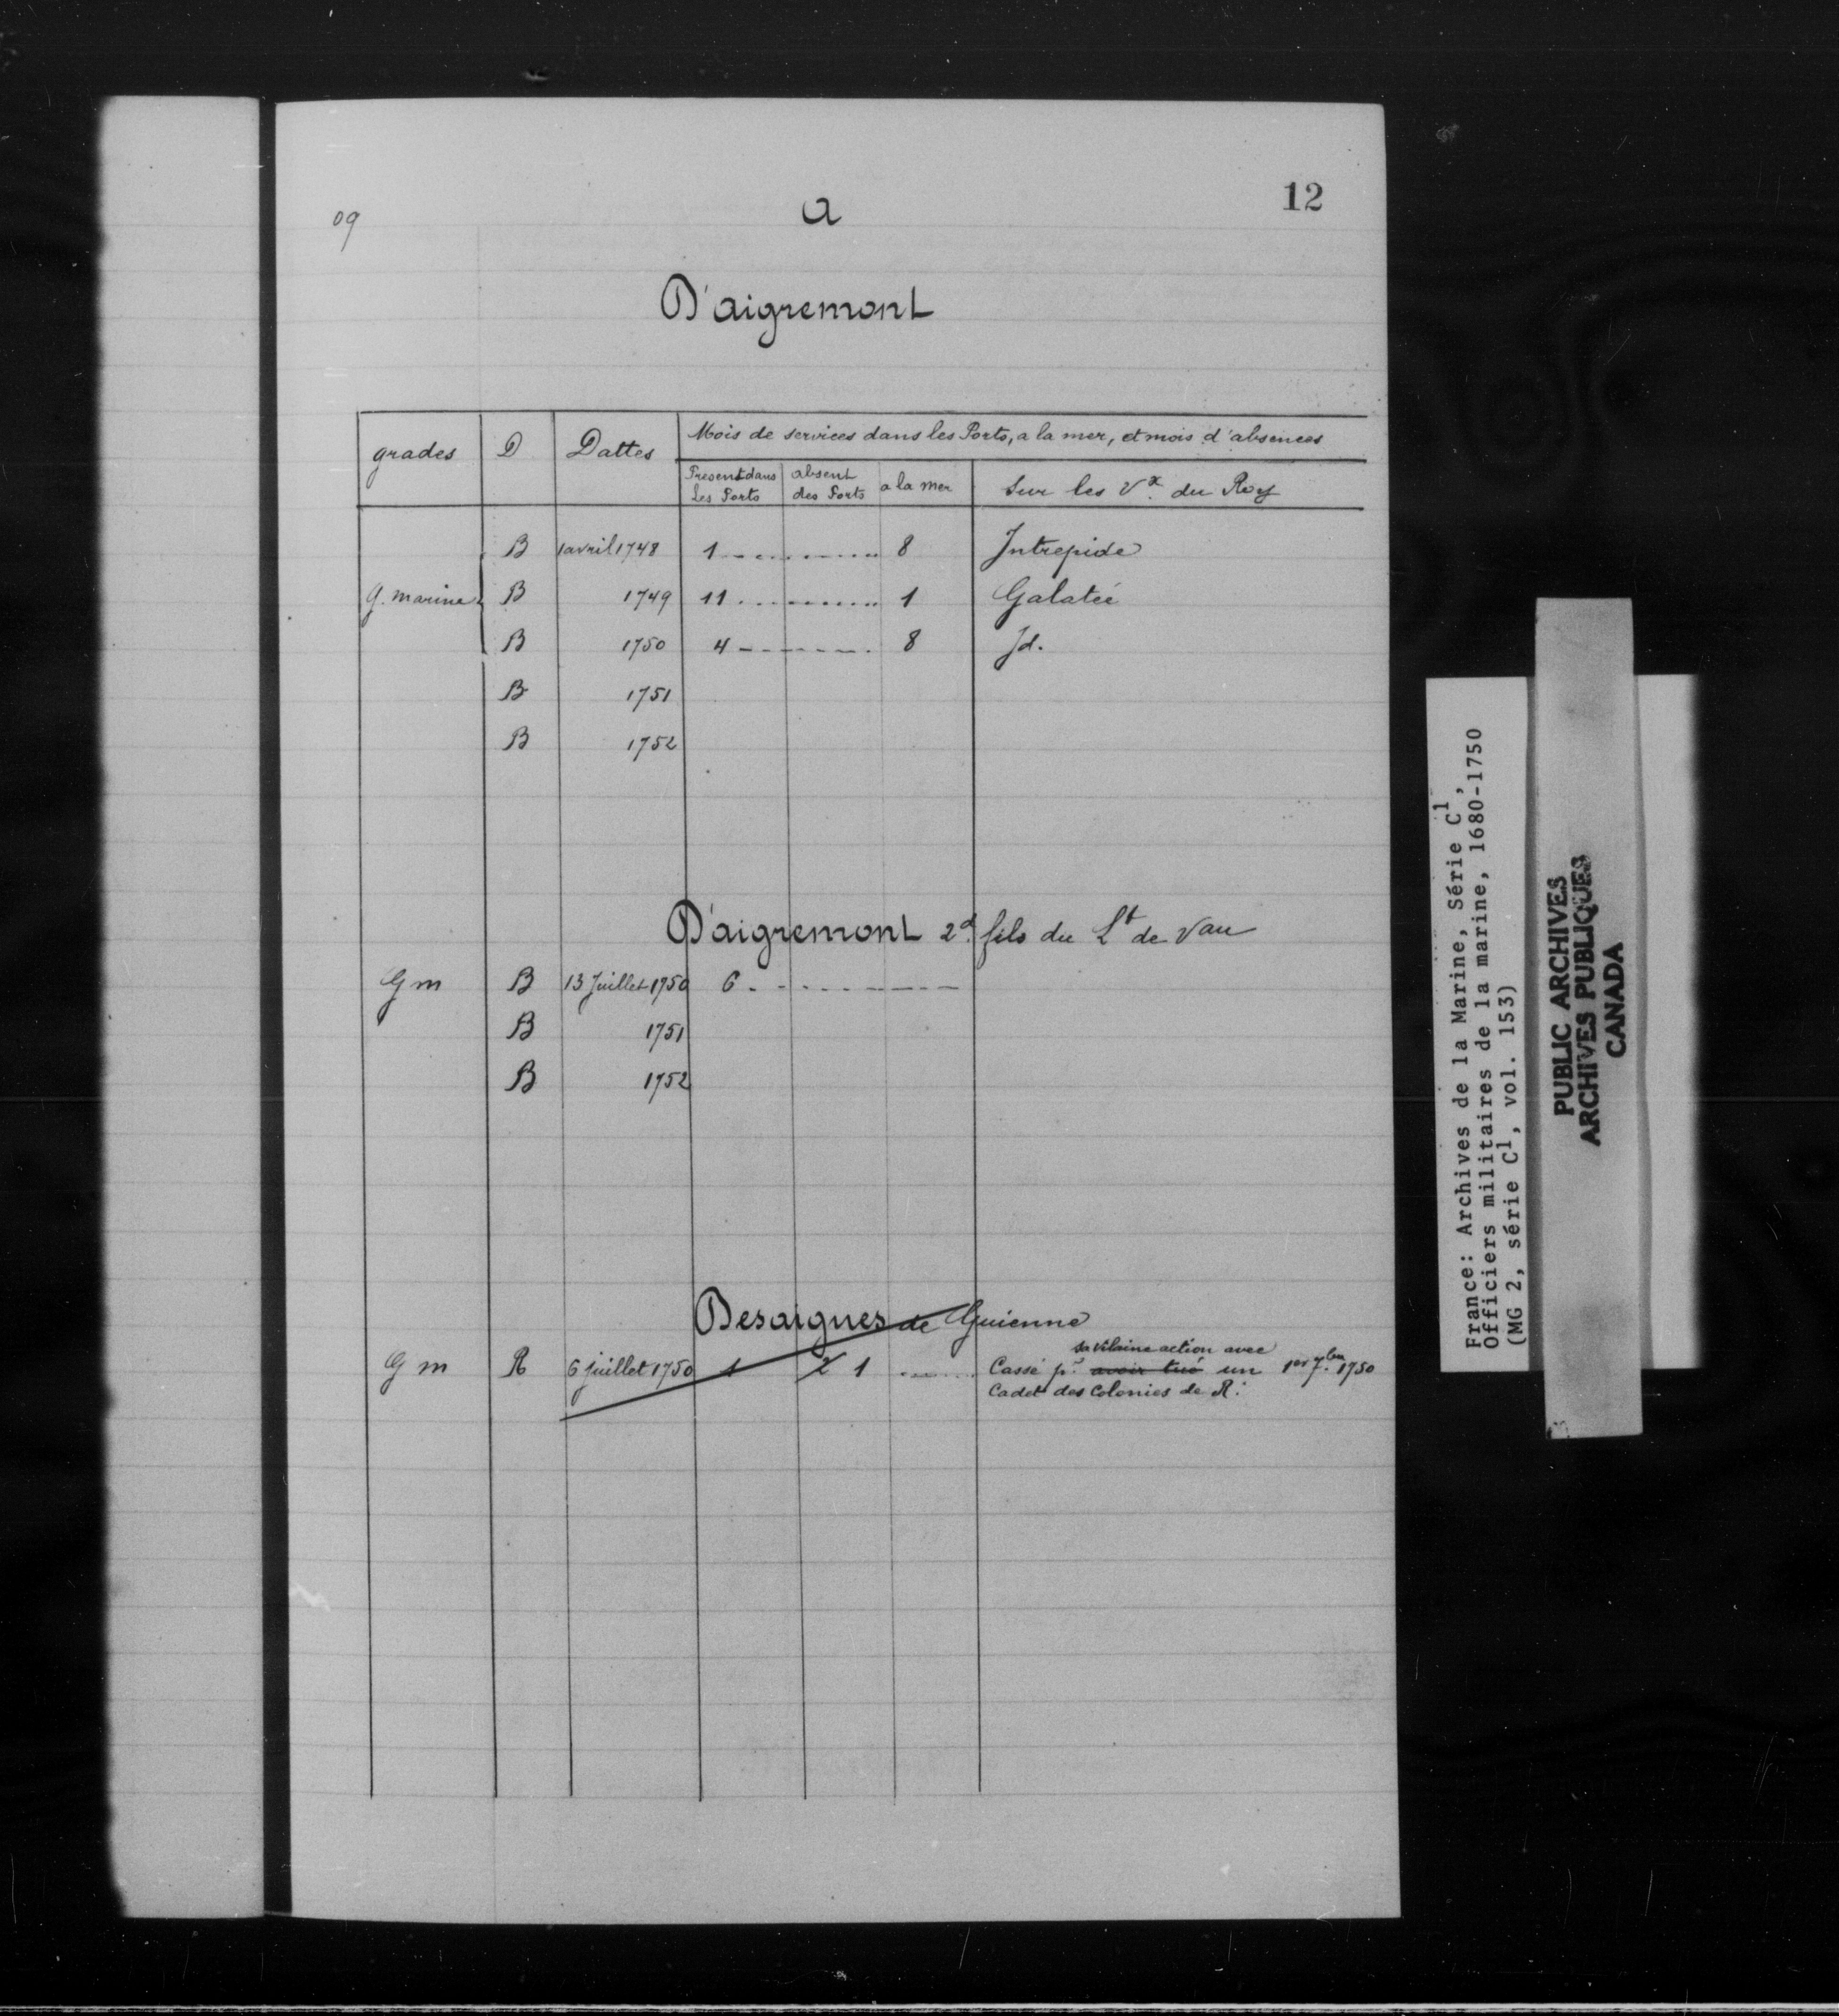 09
a
12
D'aigremont
grades D Dattes Mois de services dans les Ports, a la mer, et mois d'absences
Present dans les Ports absent des Ports a la mer Sur les Vx. du Roy
B 1 avril 1748 1 8 Intrepide
g. marine B 1749 11 1 Galateé
B 1750 4 8 Id.
B 1751
B 1752
D'aigremont 2d. fils du Lt de Vau
G m B 13 Juillet 1750 6
B 1751
B 1752
Desaigues de Guienne
sa vilaine action avec
G m R 6 juillet 1750 1 2 1 Cassé pr. avoir tué un 1er 7.bre 1750
Cadet des Colonies de R.
France: Archives de la Marine, Série C1,
Officiers militaires de la marine, 1680-1750
(MG 2, série C1, vol. 153)
PUBLIC ARCHIVES
ARCHIVES PUBLIQUES
CANADA